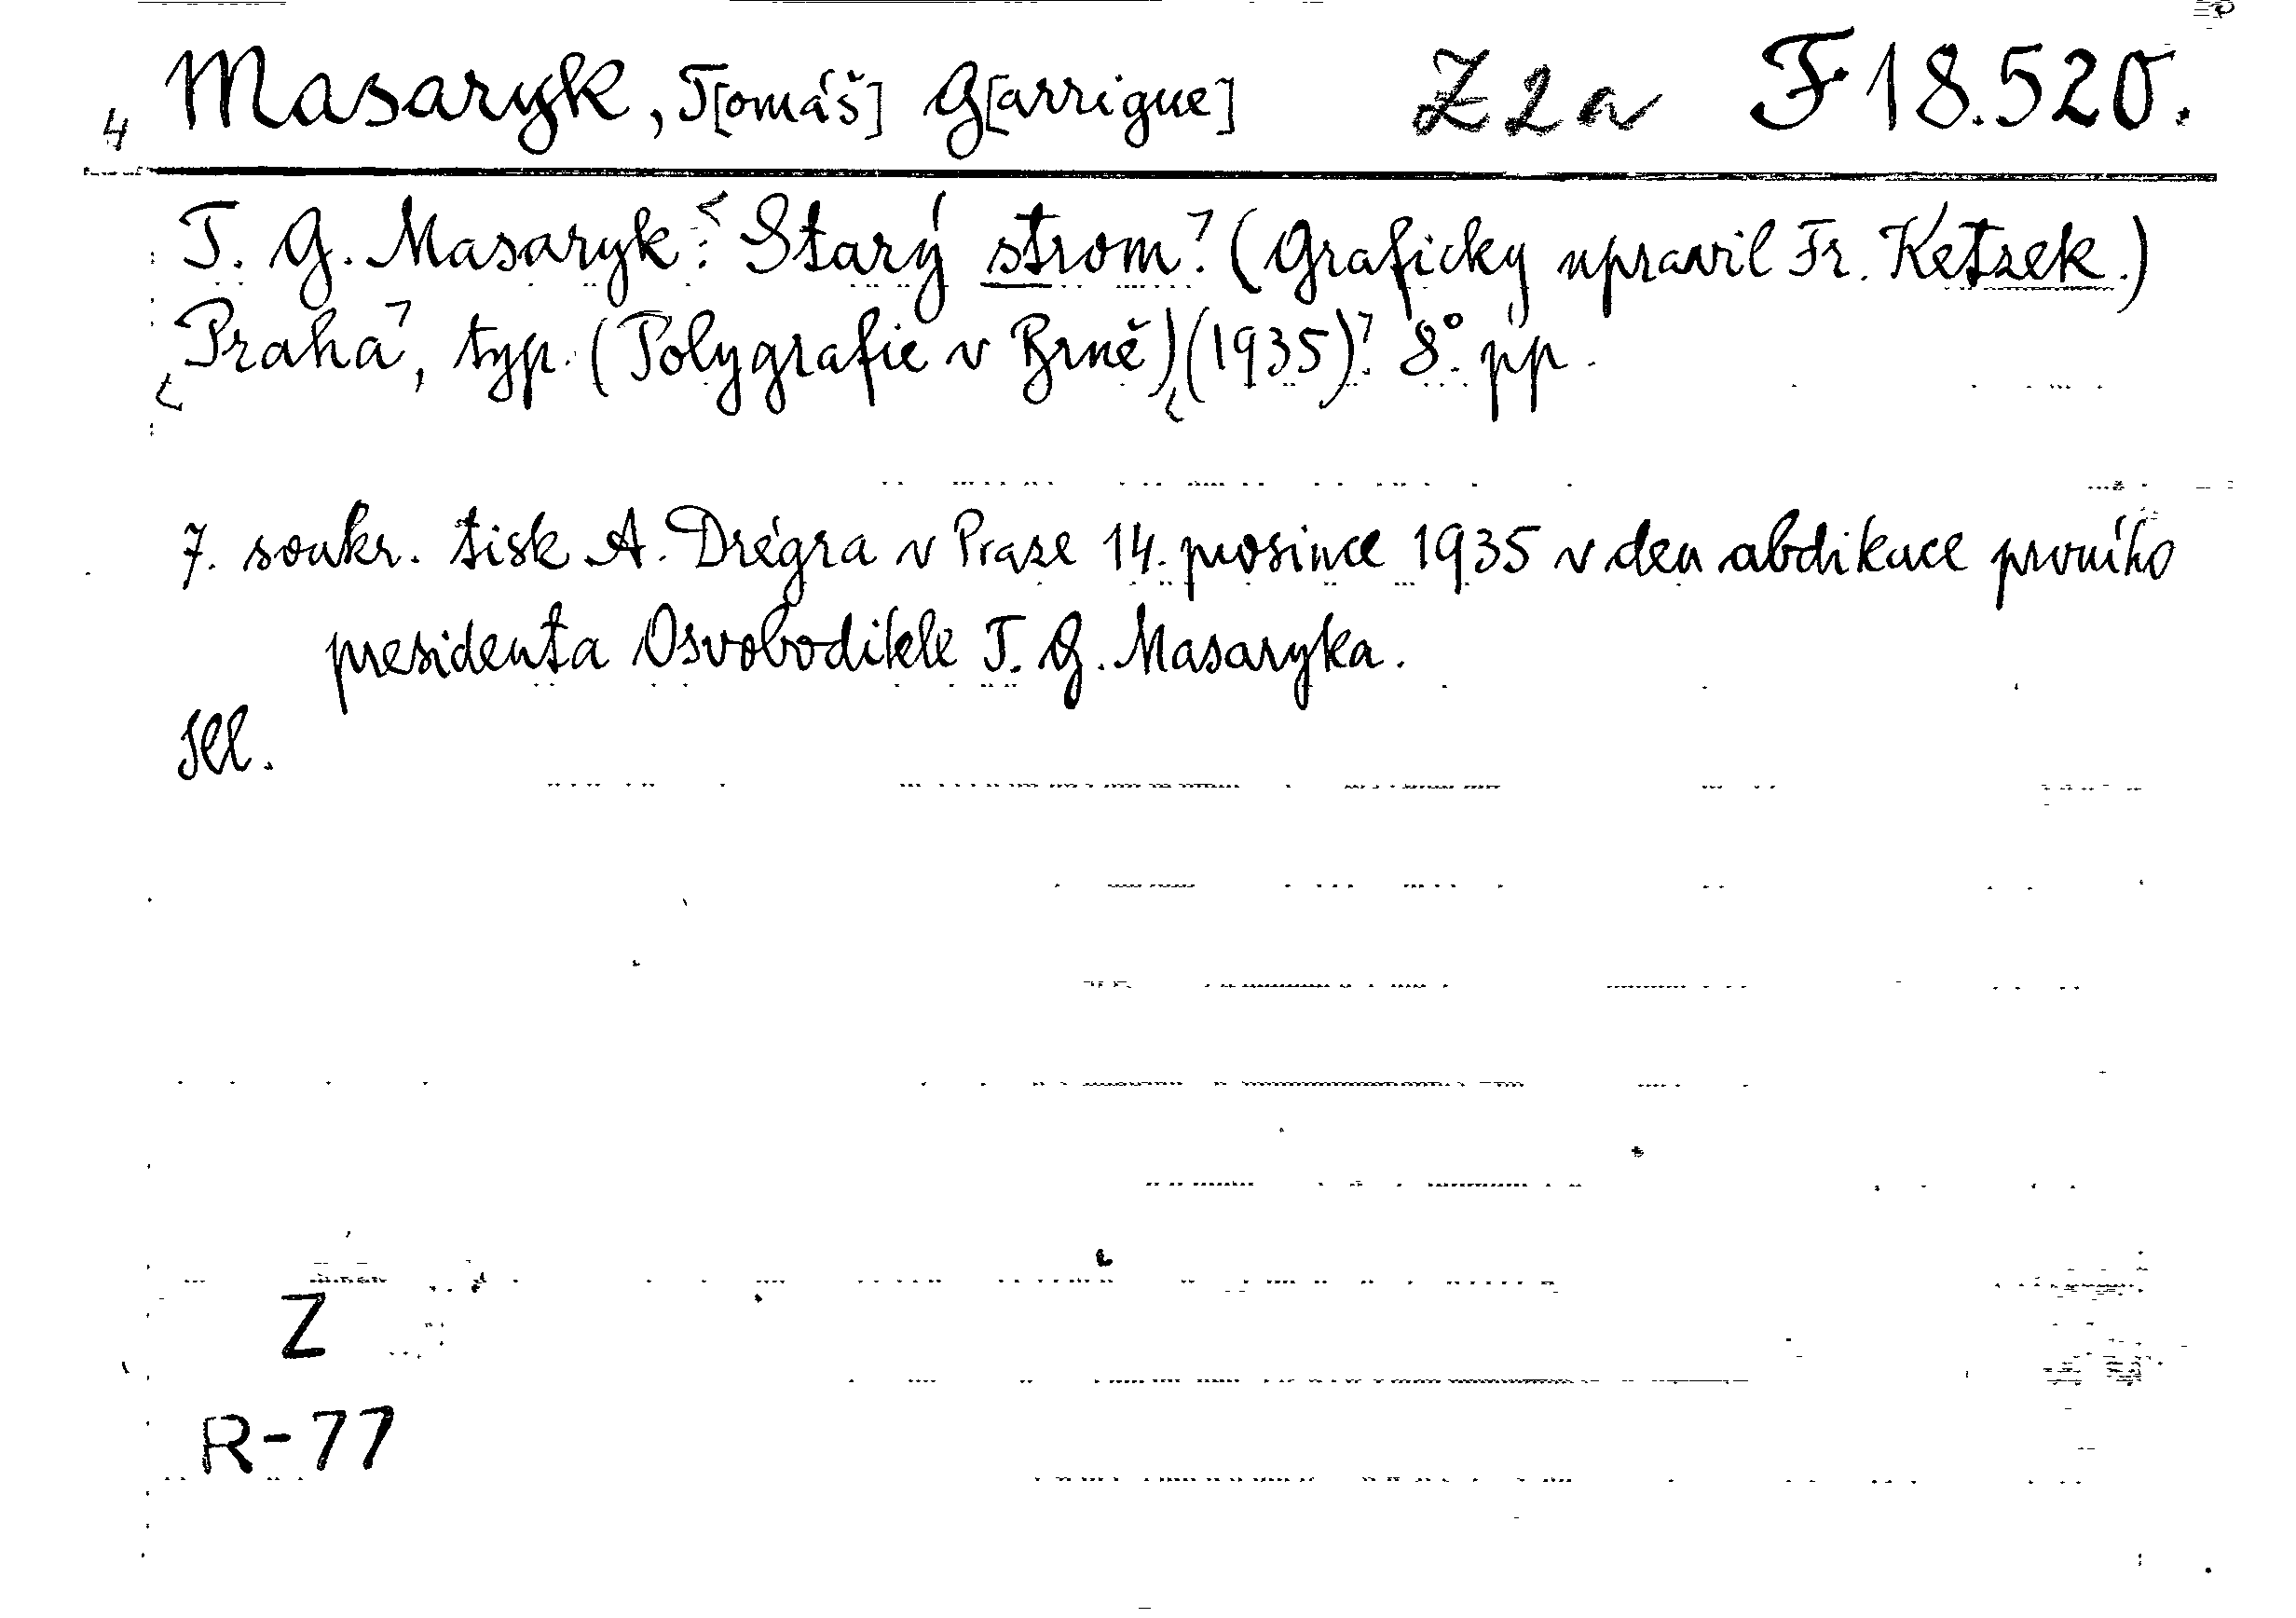 4 Masaryk, T[omáš] G[arrigue] Z2a F 18.520.
T. G. Masaryk: Starý strom. (Graficky upravil Fr. Ketzek.)
Praha, typ. (Polygrafie v Brně) (1935). 8°. pp.
7. soukr. tisk A. Drégra v Praze 14. prosince 1935 v den abdikace prvního
presidenta Osvoboditele T. G. Masaryka.
Sll.
Z
R-77